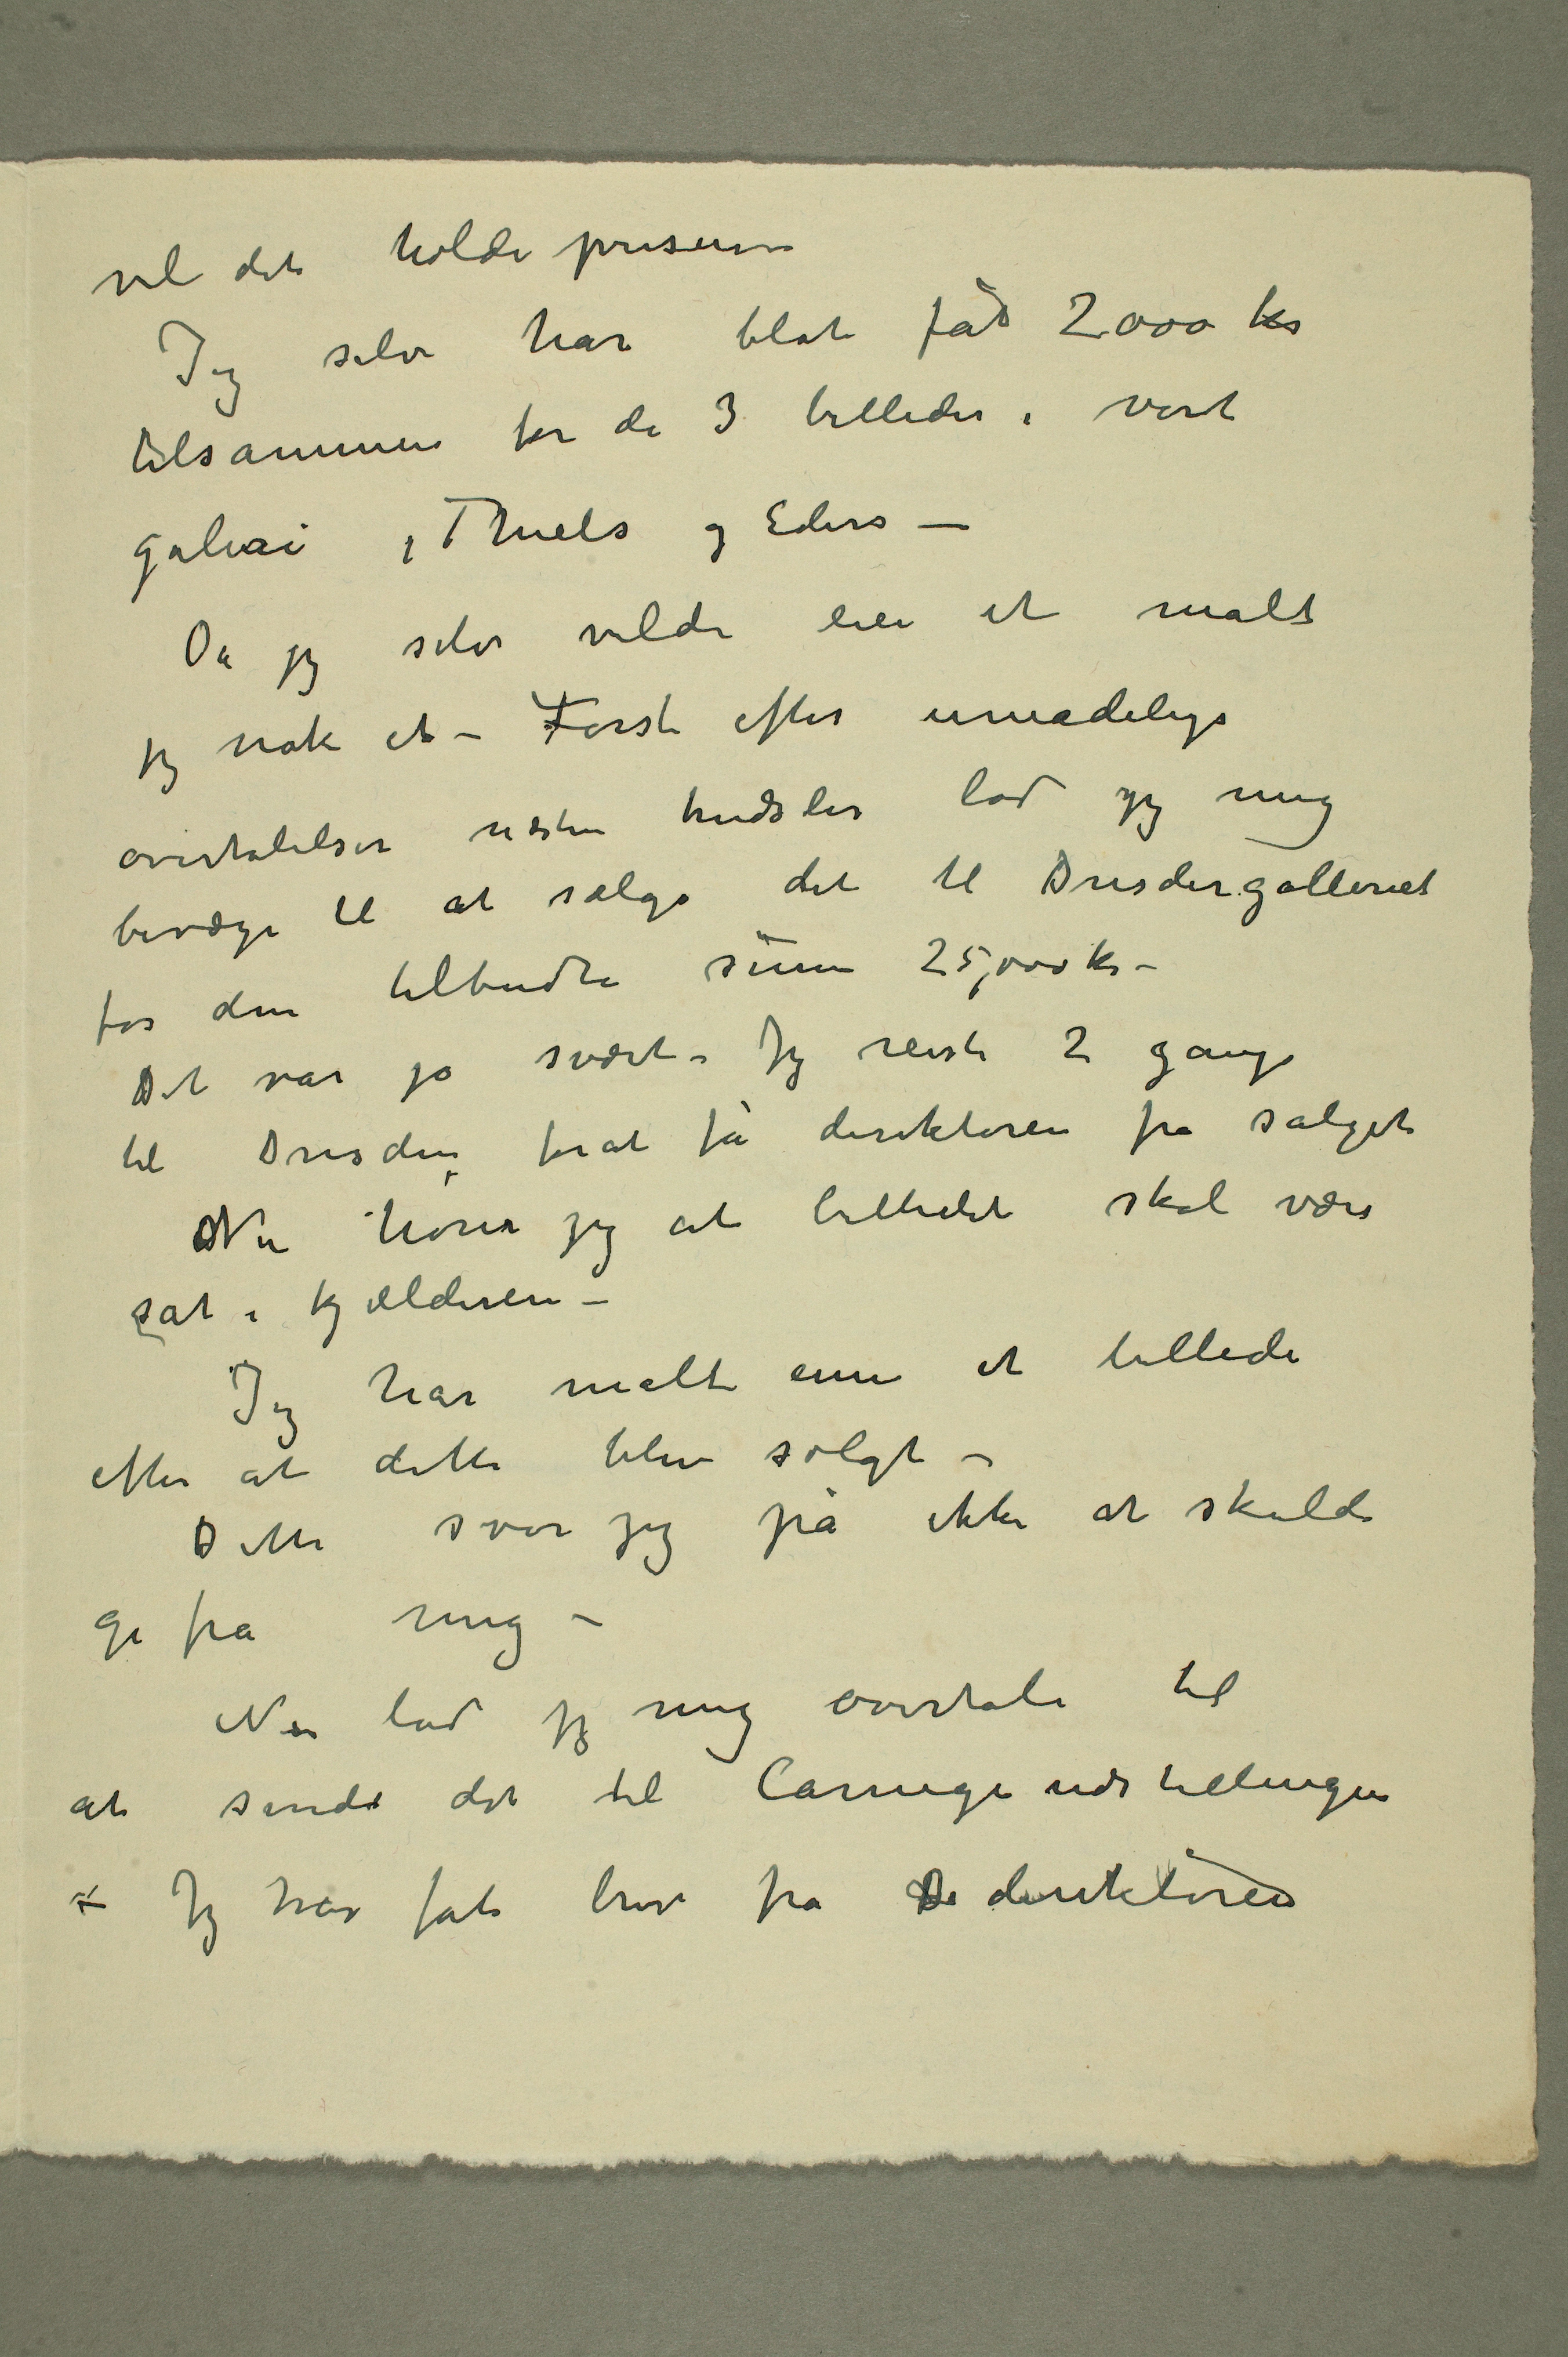 vil det holde prisen
Jeg selv har blot fåd 2000 kr
tilsammen for de 3 billeder i vort
galeri, Thiels og Eders –
Da jeg selv vilde eie et malt
jeg nok et – Først efter umådelige
overtalelser næsten trudsler lod jeg mig
bevæge til at sælge det til Dresdergalleriet
for den tilbudte sum 25,000 kr –
Det var jo svært – Jeg reiste 2 gange
til Dresden forat få direktøren fra salget
Nu hører jeg at billedet skal være
sat i kjælderen –
Jeg har malt ennu et billede
efter at dette blev solgt –
Dette svor jeg på ikke at skulde
gi fra mig –
Nu lod jeg mig overtale til
at sende det til Carnegieudstillingen
– Jeg har fåt brev fra direktøren